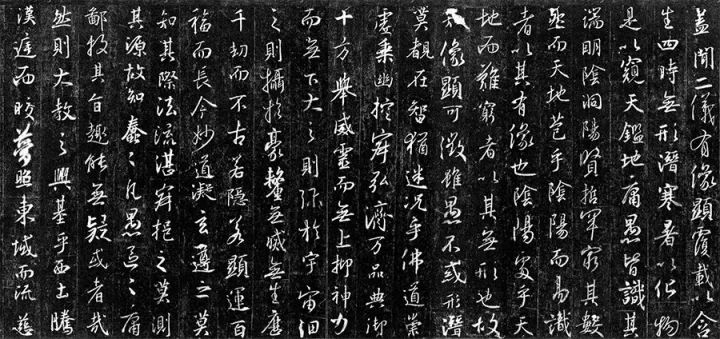 蓋聞二儀有像顯覆載以含
生四時無形潛寒暑以化物
是以窺天鑑地庸愚皆識其
端明陰洞陽賢哲罕窮其數
然而天地苞乎陰陽而易識
者以其有像也陰陽處乎天
地而難窮者以其無形也故
知像顯可徵雖愚不惑形潛
莫覩在智猶迷況乎佛道崇
虛乘幽控寂弘濟万品典御
十方舉威靈而無上抑神力
而無下大之則彌於宇宙細
之則攝於豪釐無滅無生歷
千劫而不古若隱若顯運百
福而長今妙道凝玄遵之莫
知其際法流湛寂挹之莫測
其源故知蠢々凡愚區々庸
鄙投其旨趣能無疑或者哉
然則大教之興基乎西土騰
漢庭而皎夢照東域而流慈